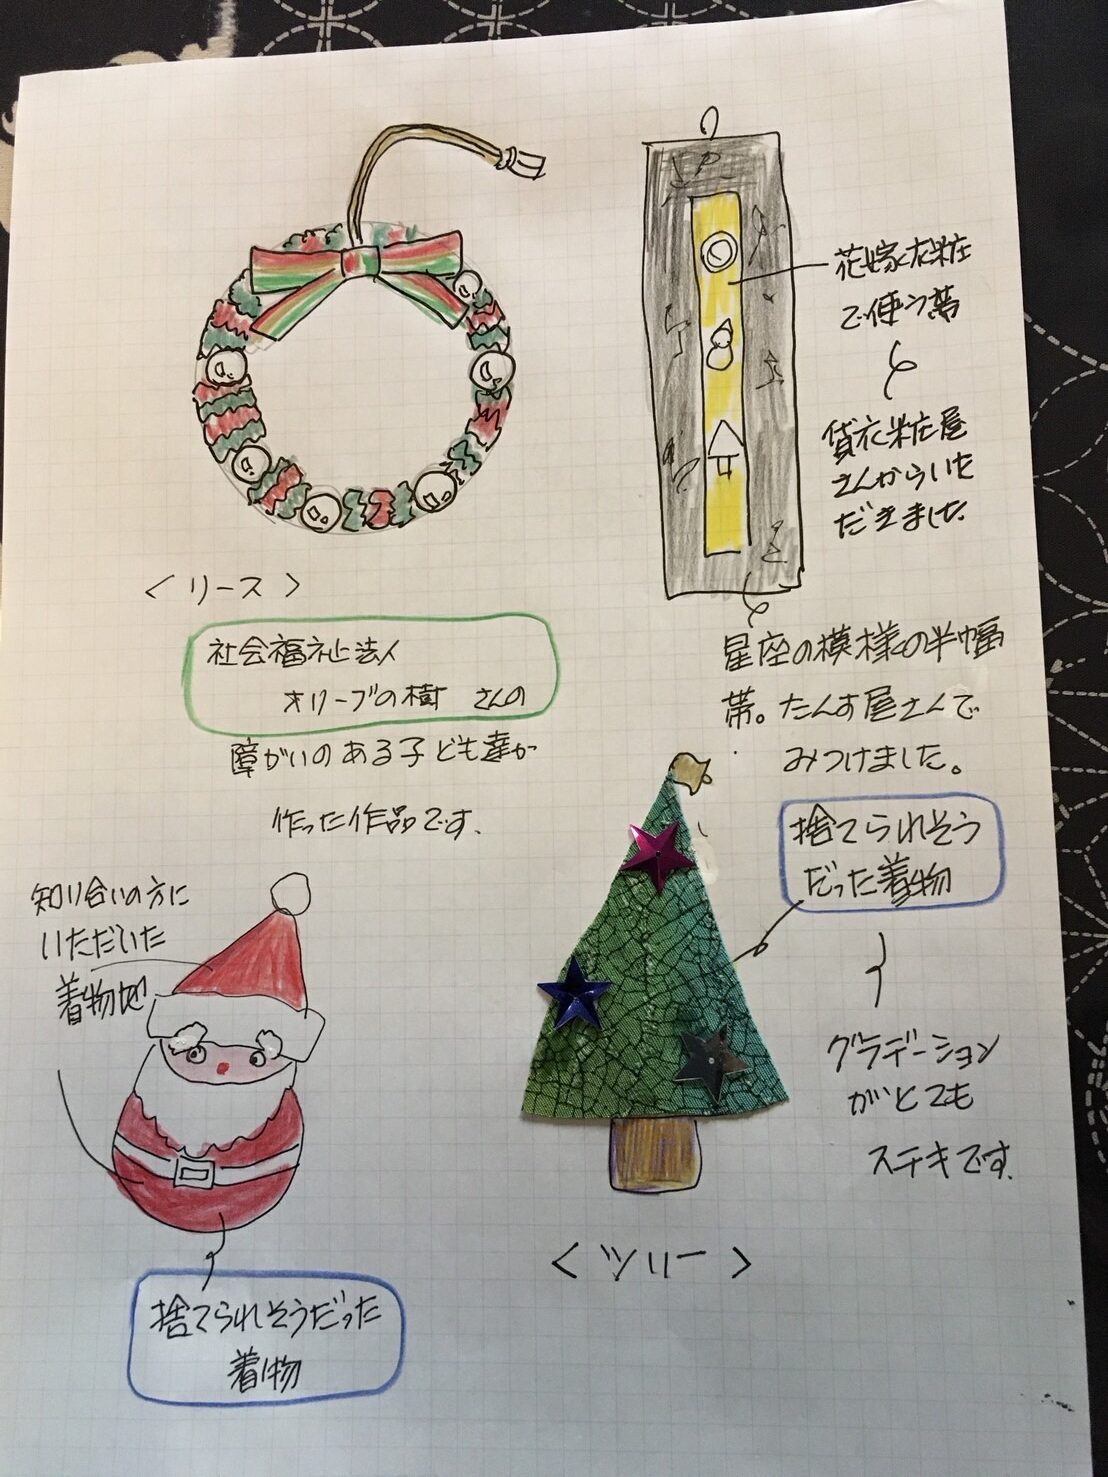 花嫁衣粧
で使う帯
貸衣粧屋
さんからいた
だきました
<リース>
社会福祉法人
オリーブの樹 さんの
障がいのある子ども達が
作った作品です.
星座の模様の半幅
帯。たんす屋さんで
みつけました。
捨てられそう
だった着物
グラデーション
がとても
ステキです.
<ツリー>
知り合いの方に
いただいた
着物地
捨てられそうだった
着物